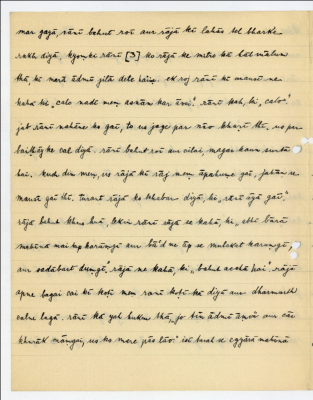 mar gayā, rānī bahut roī aur rājā kī lahāś tel bharke
rakh diyā, kyoṃki rānī [3] ko rājā ke mitro kā bāt mālum
thā, ki marā ādmī jītā dete haiṃ. ek roj rānī kī
kahā ki "calo nadī mem asnān kar āvẽ". rānī kah, ki "calo".
jab rānī nahāne ko gaī, to us jage par nāo khaṛī thī, us par
baiṭhāy ke cal diyā. rānī bahut roī aur cilāī, magar kaun suntā
hai. kuch din mem, us rājā kā rāj mem āpahuṃce gaī, jahāṃ se
gaī thī, turat rājā ko khabar diyā, ki "rānī āyā gaī".
rājā bahut khus huā, lekin rānī rājā se kahā, ki "abhī bārā
mahīnā mai tap karūṃgī aur bā'd me āp se mulākāt karūṃgī,
aur sadābart duṃgī." rājā ne kahā, ki "bahut acchā hai". rājā
apne bagal kī koṭhī mem rānī koṭhī diyā aur dharmarth
calne lagā. rānī kā yah hukm thā, "jo tīn ādmī āvẽ aur cār
khurāk māṃgai, us ko mere pās lāo." isī tarah se egyārā mahīnā